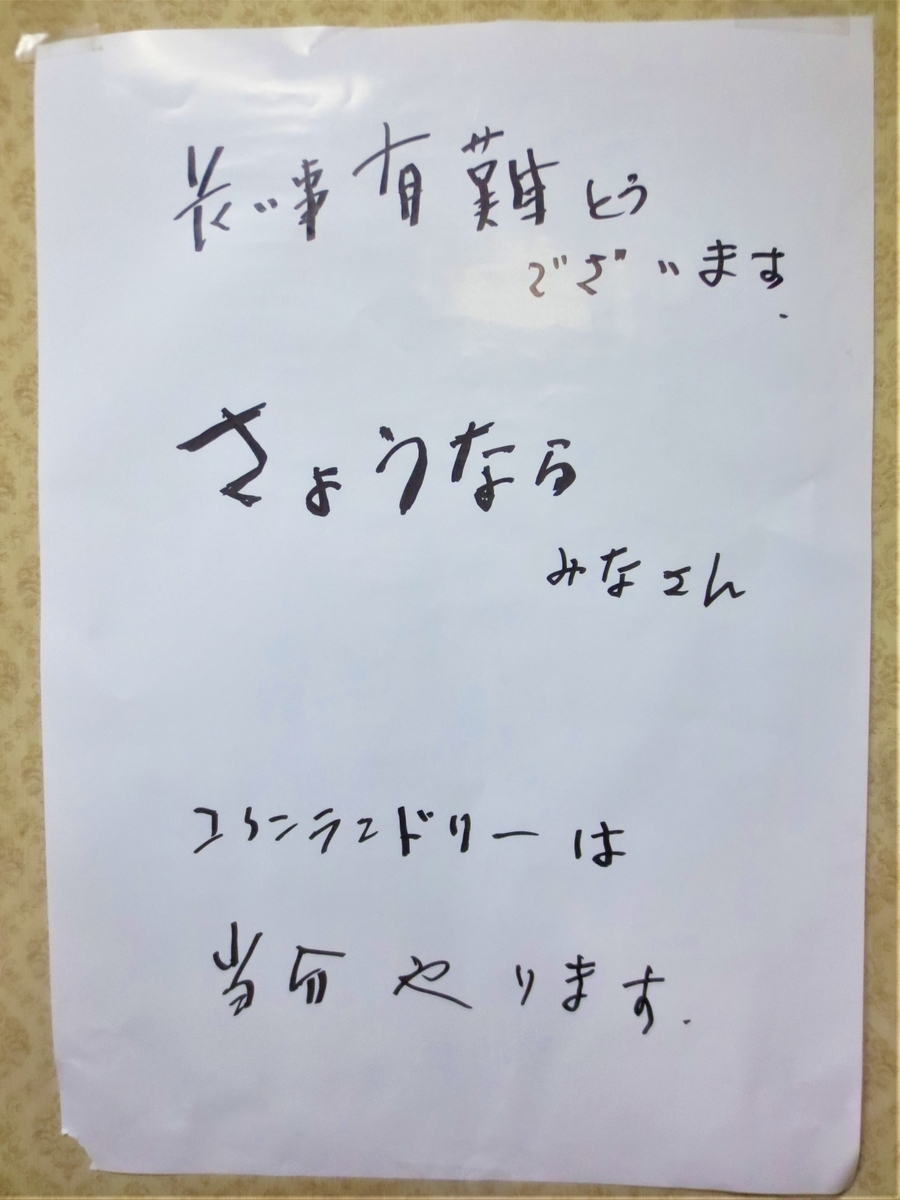 長い事有難とう
ございます.
さょうなら
みなさん
コインランドリーは
当分やります.